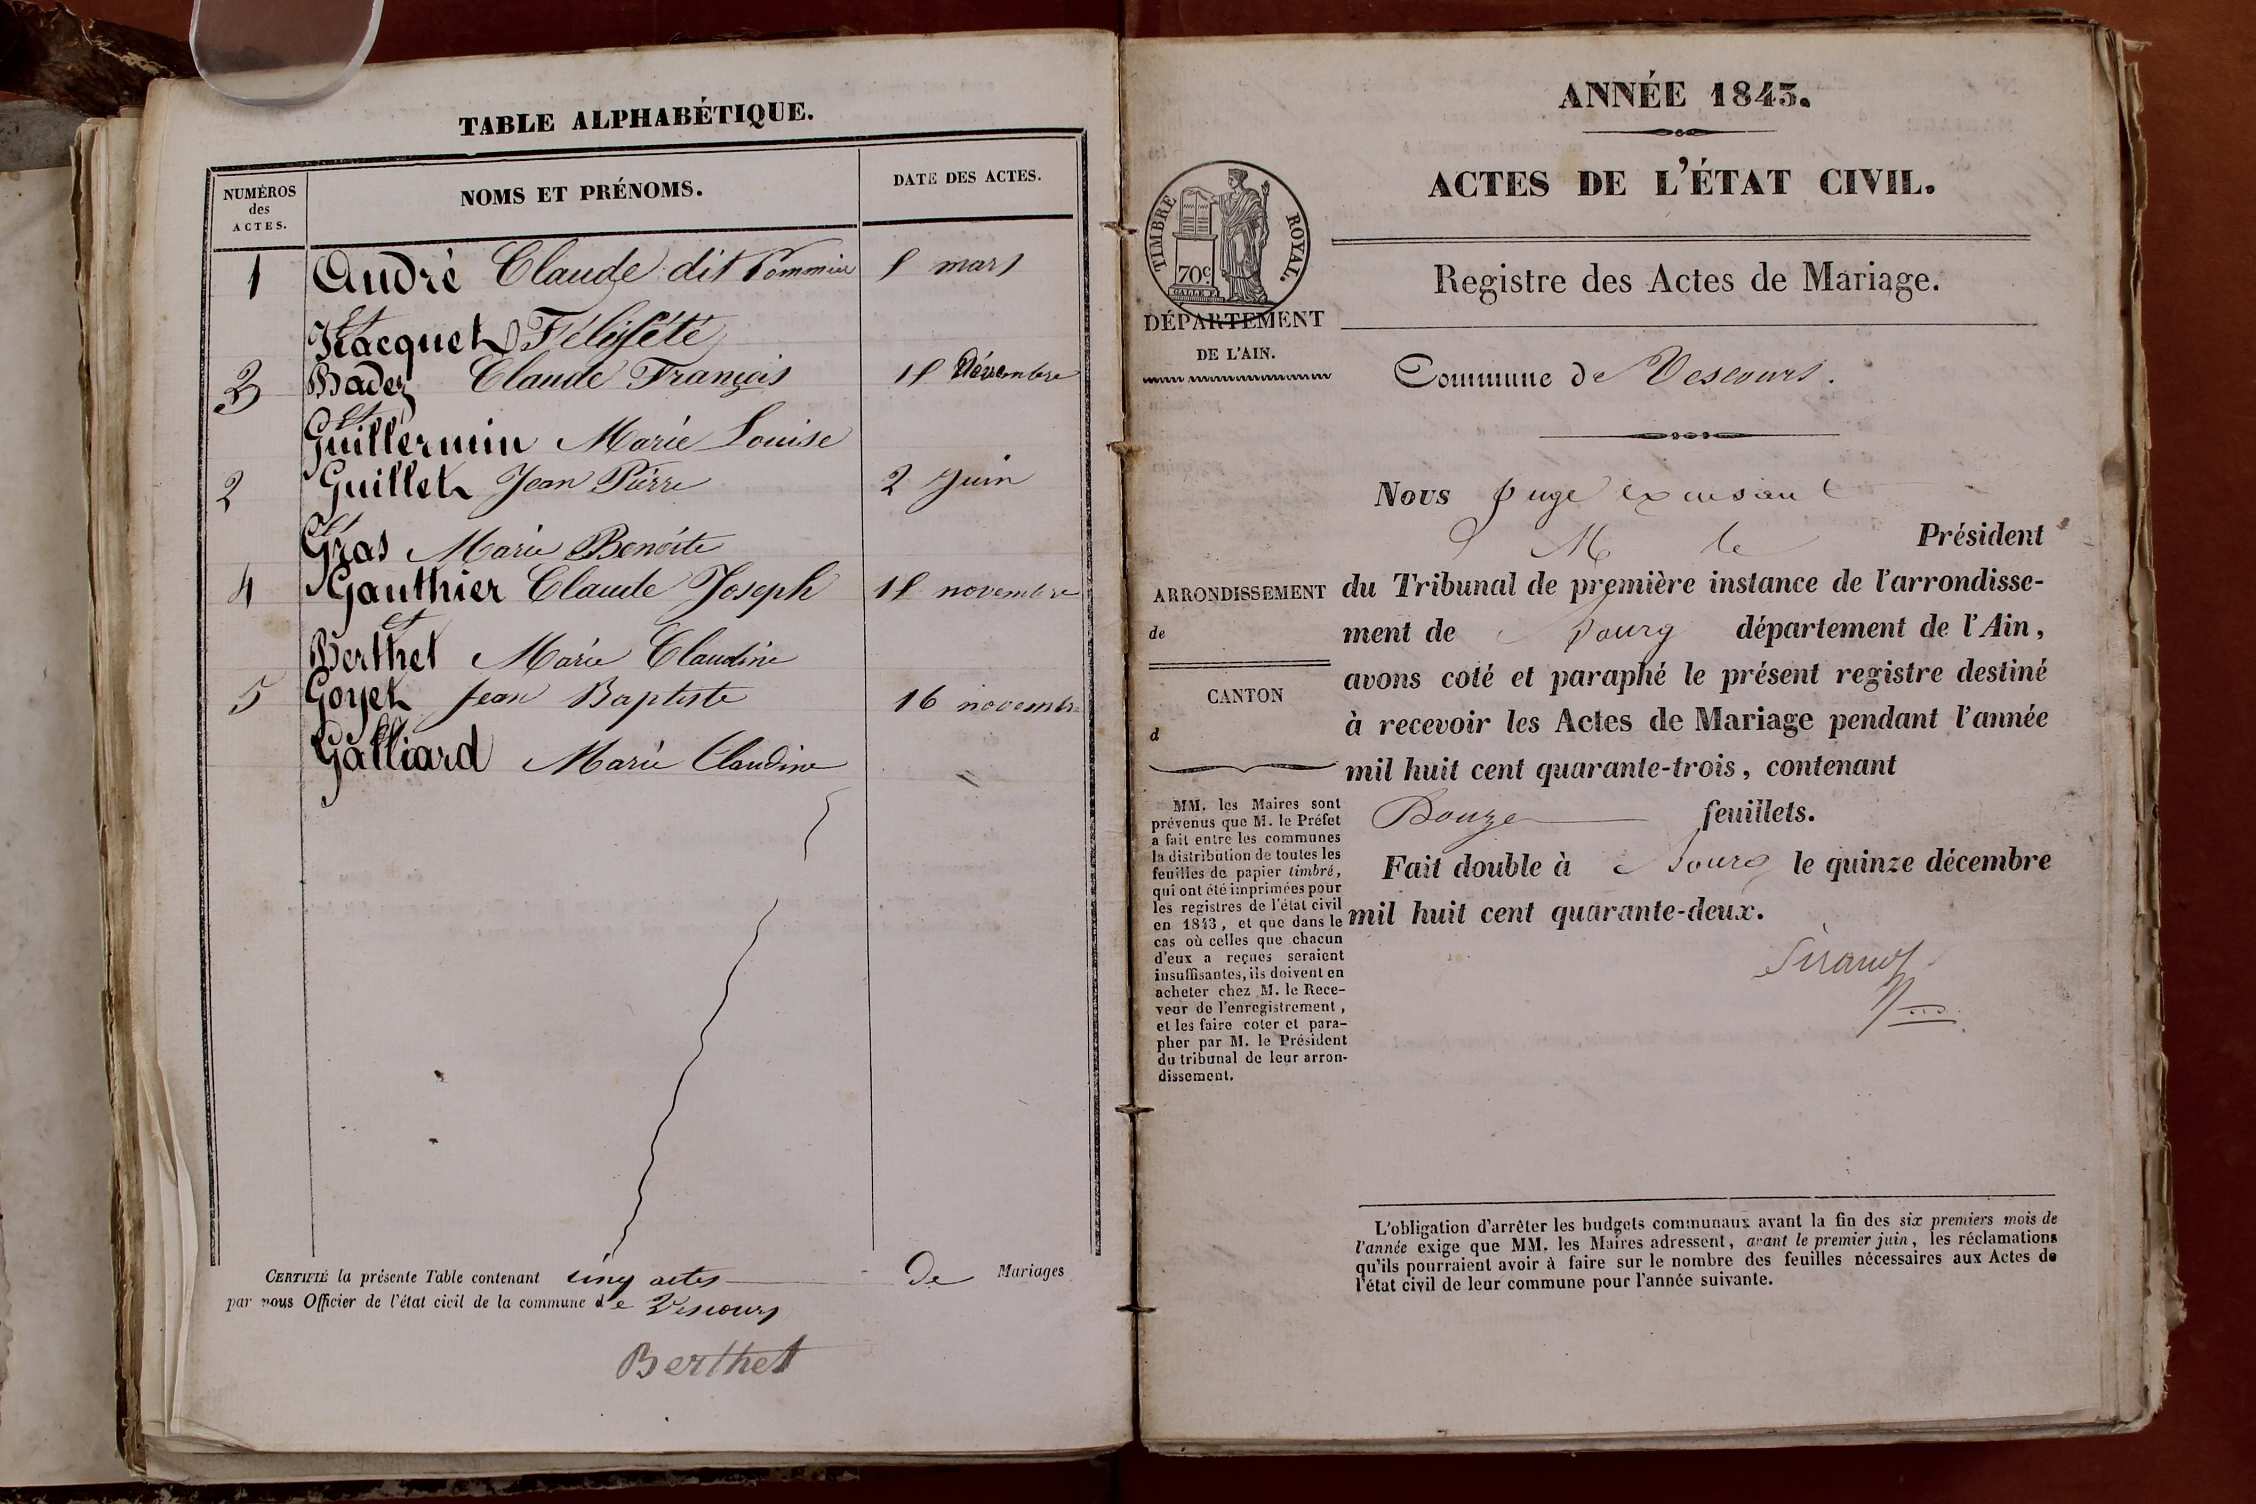 TABLE ALPHABÉTIQUE.
NUMÉROS des ACTES.
NOMS ET PRÉNOMS.
DATE DES ACTES.
1 André Claude dit Pommier 1 mars
et
Jacquet Félicité
3 Badez Claude François 11 Décembre
et
Guillermin Marie Louise
2 Guillet Jean Pierre 2 Juin
et
Gras Marie Benoite
4 Gauthier Claude Joseph 11 novembre
et
Berthet Marie Claudine
5 Goyet Jean Baptiste 16 novembre
et
Galliard Marie Claudine
CERTIFIÉ la présente Table contenant cinq actes de Mariages
par nous Officier de l'état civil de la commune de Vescours
Berthet
ANNÉE 1843.
ACTES DE L'ÉTAT CIVIL.
Registre des Actes de Mariage.
TIMBRE ROYAL.
70c
DÉPARTEMENT
DE L'AIN.
Commune de Vescours.
Nous Juge
M le Président
du Tribunal de première instance de l'arrondisse-
ment de Bourg département de l'Ain,
avons coté et paraphé le présent registre destiné
à recevoir les Actes de Mariage pendant l'année
mil huit cent quarante-trois, contenant
Douze feuillets.
Fait double à Bourg le quinze décembre
mil huit cent quarante-deux.
ARRONDISSEMENT
de
CANTON
d
MM. les Maires sont
prévenus que M. le Préfet
a fait entre les communes
la distribution de toutes les
feuilles de papier timbré,
qui ont été imprimées pour
les registres de l'état civil
en 1843, et que dans le
cas où celles que chacun
d'eux a reçues seraient
insuffisantes, ils doivent en
acheter chez M. le Rece-
veur de l'enregistrement,
et les faire coter et para-
pher par M. le Président
du tribunal de leur arron-
dissement.
L'obligation d'arrêter les budgets communaux avant la fin des six premiers mois de
l'année exige que MM. les Maires adressent, avant le premier juin, les réclamations
qu'ils pourraient avoir à faire sur le nombre des feuilles nécessaires aux Actes de
l'état civil de leur commune pour l'année suivante.